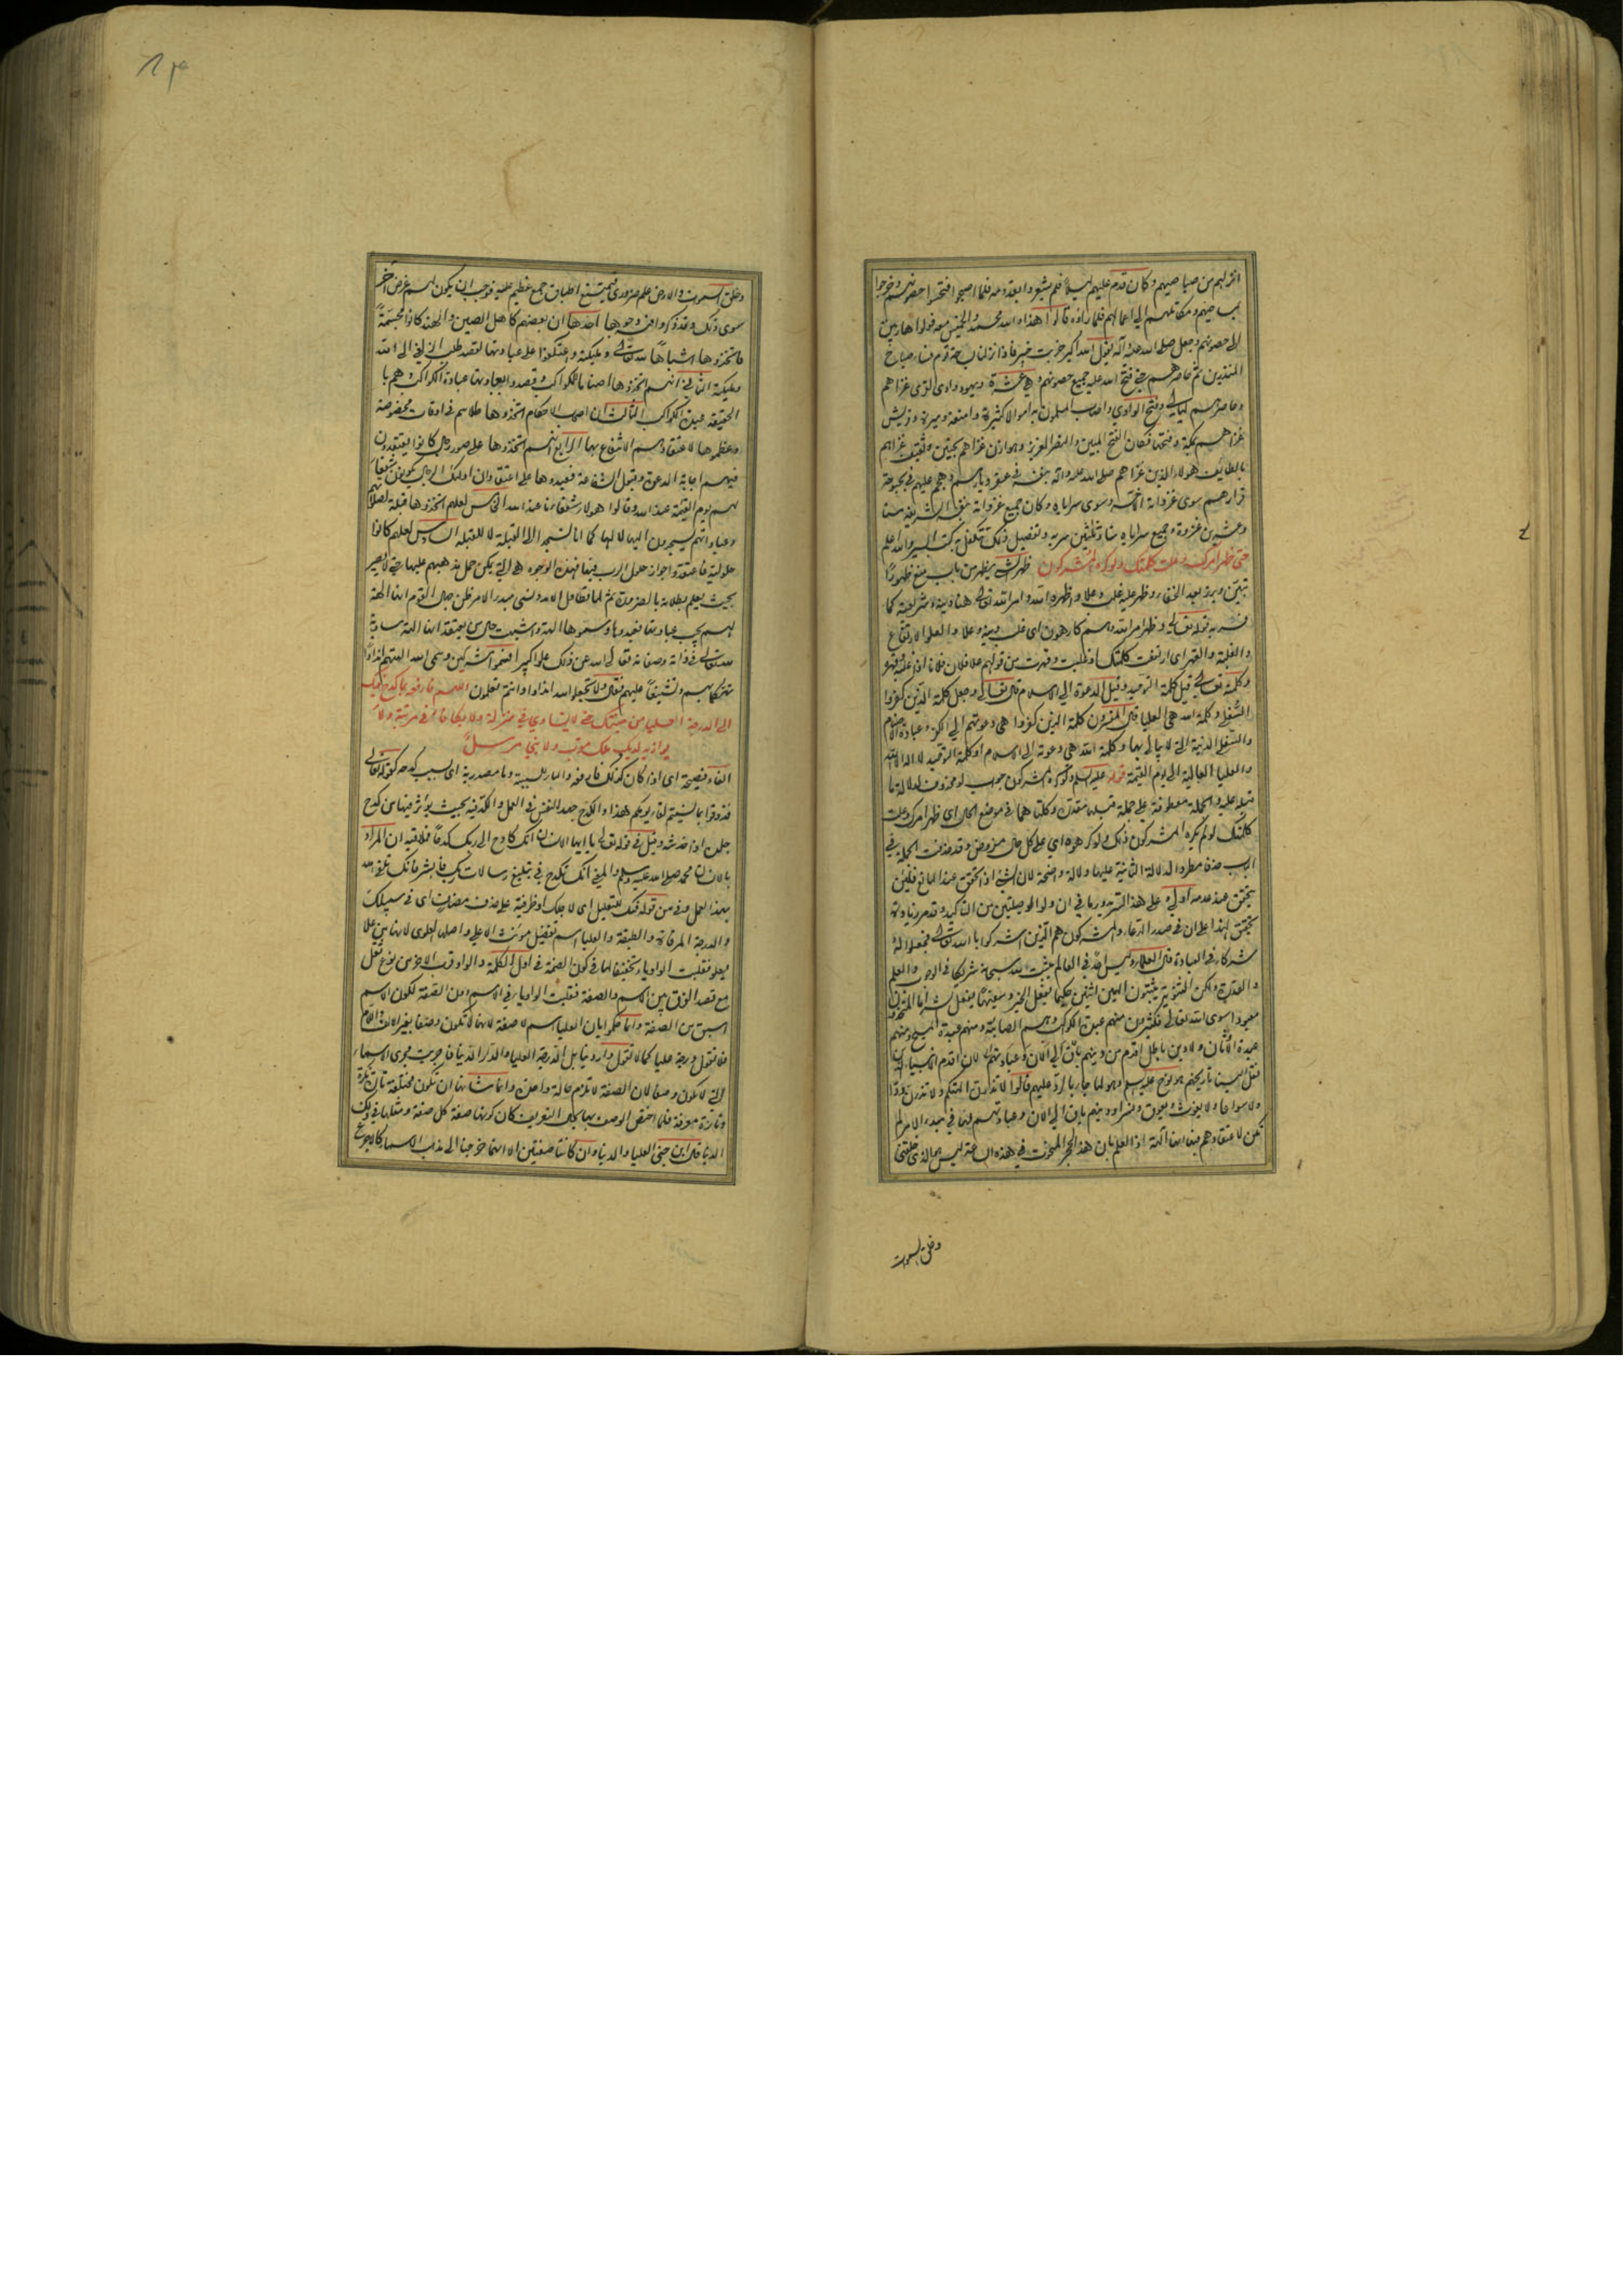 انزلهم من صياصيهم وكان قدم عليهم ليلا فلم يشعروا بقدومه فلما اصبحوا فتحوا حصونهم وخرجوا
بمساحيهم ومكاتلهم الى اعمالهم فلما راوه قالوا هذا والله محمد والخميس معه فولوا هاربين
الى حصونهم وجعل صلى الله عليه وآله يقول الله اكبر خربت خيبر فاذا نزلنا بساحة قوم فساء صباح
المنذرين ثم حاصرهم حتى فتح الله عليه جميع حصونهم وهي عشرة ويهود وادي القرى غزاهم
وحاصرهم ليالي وفتح الوادي واصاب المسلمون به اموالا كثيرة وامتعة وميرة وقريش
غزاهم بمكة وفتحها فكان الفتح المبين والنصر العزيز وهوازن غزاهم بحنين وثقيف غزاهم
بالطائف هولاء الذين غزاهم صلى الله عليه وآله بنفسه في عقر ديارهم وهجم عليهم في بحبوحة
قرارهم سوى غزواته الاخر وسوى سراياه وكان جميع غزواته بنفسه الشريفة ستا
وعشرين غزوة وجميع سراياه ستا وثلثين سرية وتفصيل ذلك تتكفل به كتب السير والله اعلم
حتى ظهر امرك وعلت كلمتك ولو كره المشركون ظهر الشيء يظهر من باب منع ظهورا
تبين وبرز بعد الخفاء وظهر عليه غلب وعلا واظهره الله وامر الله تعالى هنا دينه وشرايعه كما
فسر به قوله تعالى وظهر امر الله وهم كارهون اى غلب دينه وعلا والعلو الارتفاع
والغلبة والقهر اى ارتفعت كلمتك او غلبت وقهرت من قولهم علا فلان فلانا اذا غلبه وقهره
وكلمته تعالى قيل كلمة التوحيد وقيل الدعوة الى الاسلام قال تعالى وجعل كلمة الذين كفروا
السفلى وكلمة الله هي العليا قال المفسرون كلمة الذين كفروا هي دعوتهم الى الكفر وعبادة الاصنام
والسفلى الدنية التي لا يبالى بها وكلمة الله هي دعوته الى الاسلام او كلمة التوحيد لا اله الا الله
والعليا العالية الى يوم القيمة قوله عليه السلم ولو كره المشركون جواب لو محذوف لدلالة ما
قبله عليه والجملة معطوفة على جملة قبلها مقدرة وكلتاهما في موضع الحال اى ظهر امرك وعلت
كلمتك لو لم يكره المشركون ذلك ولو كرهوه اى على كل حال مفروض وقد حذفت الجملة في
الباب حذفا مطردا لدلالة الثانية عليها دلالة واضحة لان الشيء اذا تحقق عند المانع فلان
يتحقق عند عدمه اولى وعلى هذا السر يدور ما في ان ولو الوصليتين من التاكيد وقد مر زيادة
تحقيق لهذا على ان في صدر الدعاء والمشركون هم الذين اشركوا بالله تعالى فجعلوا له
شركاء في العبادة قال العلماء وليس احد في العالم يثبت لله سبحانه شريكا في الوجود والعلم
والقدرة ولكن الثنوية يثبتون الهين اثنين حكيما يفعل الخير وسفيها يفعل الشر اما المتخذون
معبودا سوى الله تعالى فكثيرون منهم عبدة الكواكب وهم الصابئة ومنهم عبدة المسيح ومنهم
عبدة الاوثان ولا دين باطل اقدم من دينهم باق الى الآن وعبادتهم لان اقدم الانبياء الذين
نقل الينا تاريخهم هو نوح عليه السلم وهو انما جاء بالرد عليهم قالوا لا تذرن آلهتكم ولا تذرن ودا
ولا سواعا ولا يغوث ويعوق ونسرا ودينهم باق الى الآن وعبادتهم لها في مبدء الامر لم
تكن لاعتقادهم فيها انها آلهة اذ العلم بان هذا الحجر المنحوت في هذه الساعة ليس هو الذي خلقني
وخلق السموات
وخلق السموات والارض علم ضروري فيمتنع اطباق جمع عظيم عليه فوجب ان يكون لهم غرض آخر
سوى ذلك وقد ذكروا فيه وجوها احدها ان بعضهم كاهل الصين والهند كانوا مجسمة
فاتخذوها اشباها لله تعالى وملئكته واعتكفوا على عبادتها لقصد طلب الزلفى الى الله
وملئكته الثاني انهم اتخذوها اصناما للكواكب وقصدوا بعبادتها عبادة الكواكب وهم با
لحقيقة عبدة الكواكب الثالث ان اصحاب الاحكام اتخذوها طلاسم في اوقات مخصوصة
وعظموها لاعتقادهم الانتفاع بها الرابع انهم اتخذوها على صور رجال كانوا يعتقدون
فيهم اجابة الدعوة وقبول الشفاعة فعبدوها على اعتقاد ان اولئك الرجال يكونون شفعاء
لهم يوم القيمة عند الله وقالوا هولاء شفعاؤنا عند الله الخامس لعلهم اتخذوها قبلة لصلاتهم
وعباداتهم يسجدون اليها لا لها كما انا نسجد الى القبلة لا للقبلة السادس لعلهم كانوا
حلولية فاعتقدوا جواز حلول الرب فيها فهذه الوجوه هي التي يمكن حمل مذهبهم عليها حتى لا يصير
بحيث يعلم بطلانه بالضرورة ثم لما تطاول الامد ونسي مبدء الامر ظن جهال القوم انها آلهة
لهم يجب عبادتها فعبدوها وسموها آلهة واشبهت حالهم حال من يعتقد انها آلهة مساوية
لله تعالى في ذاته وصفاته تعالى الله عن ذلك علوا كبيرا فسموا مشركين ونهى الله آلهتهم اندادا
تهكما بهم وتشنيعا عليهم فقال ولا تجعلوا لله اندادا وانتم تعلمون اللهم فارفعه بما كدح فيك
الى الدرجة العليا من جنتك حتى لا يساوى في منزلة ولا يكافأ في مرتبة ولا
يوازيه لديك ملك مقرب ولا نبي مرسل
الفاء فصيحة اى اذا كان كذلك فارفعه والباء للسببية وما مصدرية اى بسبب كدحه كقوله تعالى
فذوقوا بما نسيتم لقاء يومكم هذا والكدح جهد النفس في العمل والكد فيه بحيث يؤثر فيها من كدح
جلده اذا خدشه وقيل في قوله تعالى يا ايها الانسان انك كادح الى ربك كدحا فملاقيه ان المراد
بالانسان محمد صلى الله عليه وسلم والمعنى انك تكدح في تبليغ رسالات ربك فابشر فانك تلقى الله
بهذا العمل وفي من قوله فيك للتعليل اى لاجلك او ظرفية على حذف مضاف اى في سبيلك
والدرجة المرقاة والطبقة والعليا اسم تفضيل مونث الاعلى واصلها العلوى لانها من علا
يعلو فقلبت الواو ياء تخفيفا لها في كون الضمة في اول الكلمة والواو قرب الاخر من نوع ثقل
مع قصد الفرق بين الاسم والصفة فقلبت الواو ياء في الاسم دون الصفة لكون الاسم
اسبق من الصفة وانما حكموا بان العليا اسم لا صفة لانها لا تكون وصفا بغير الالف واللام
فلا تقول درجة عليا كما لا تقول دار دنيا بل الدرجة العليا والدار الدنيا فاجريت مجرى الاسماء
التي لا تكون وصفا لان الصفة لا تلزم حالة واحدة وانما شانها ان تكون مختلفة تارة نكرة
وتارة معرفة فلما اختص الوصف بها بحال التعريف كان كونها صفة كلا صفة ومثلها في ذلك
الدنيا قال ابن جني العليا والدنيا وان كانتا صفتين الا انهما خرجتا الى مذاهب الاسماء كالاجرع